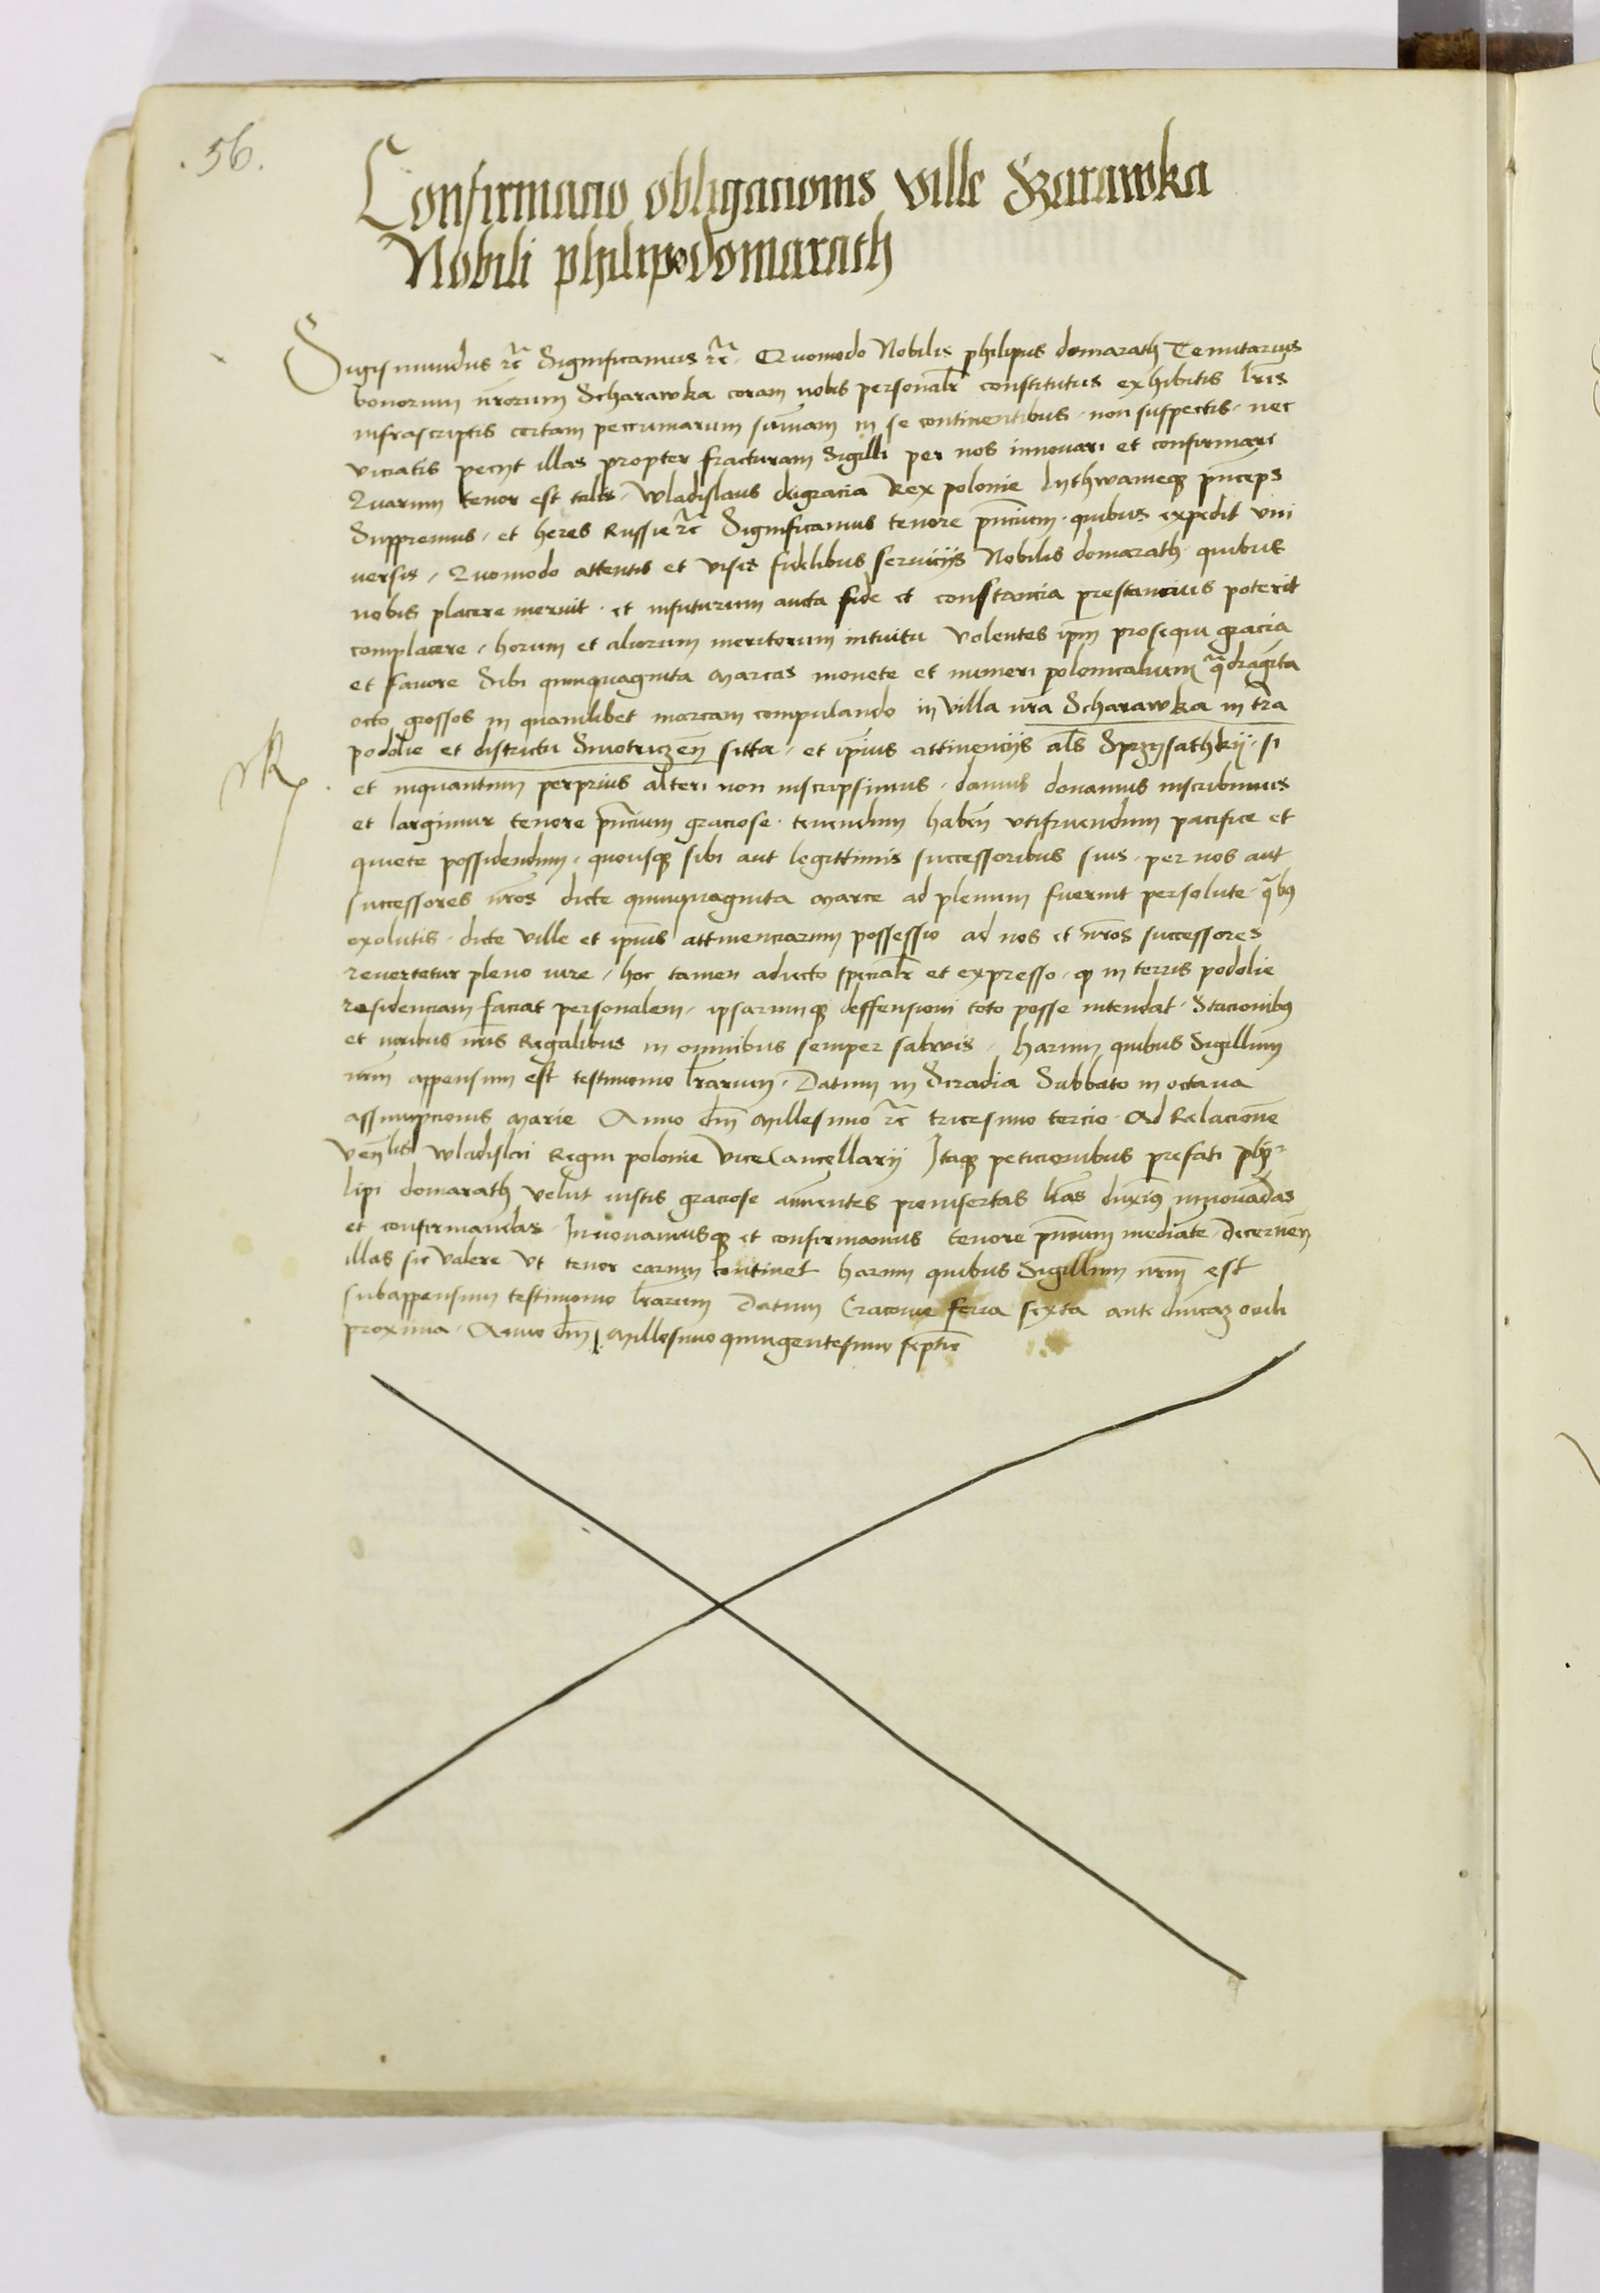 . 56 .
Confirmacio obligacionis ville Szarawka
Nobili philipo domarath
Sigismundus rc̃ Significamus rc̃ · Quomodo Nobilis philipus domarath Tenutarius
bonorum nr̃orum Scharawka coram nobis personalr̃ constitutus exhibitis lr̃is
infrascriptis certam peccuniarum sum̃am in se continentibus · non suspectis · nec
viciatis pecyt illas propter fracturam Sigilli per nos innovari et confirmari
Quarum tenor est talis · Wladislaus dei gracia Rex polonie lythwanieq3 princeps
Suppremus · et heres Russie rc̃ Significamus tenore pñcium · quibus expedit vni
uersis / Quomodo attentis et visis fidelibus seruicijs Nobilis domarath · quibus
nobis placere meruit · et infuturum aucta fide et constancia prestancius poterit
complacere / horum et aliorum meritorum intuitu volentes ip̃m prosequi gracia
et favore Sibi quinquaginta marcas monete et numeri polonicalium q̃dragĩta
octo grossos in quamlibet marcam computando in villa nr̃a Scharawka in tr̃a
podolie et districtu Smotriczeñ sitta · et ip̃ius attinencijs al̃s Sprzysathkij · si
et inquantum perprius alteri non inscripsimus · damus donamus inscribimus
et largimur tenore pñcium graciose · tenendum habeñ vtifruendum pacifice et
quiete possidendum · quousq3 sibi aut legittimis successoribus suis · per nos aut
successores nr̃os dicte quinquaginta marce ad plenum fuerint persolute · q̃b9
exolutis · dicte ville et ip̃ius attinenciarum possessio ad nos et nr̃os successores
reuertetur pleno iure / hoc tamen adiecto specialr̃ et expresso · q̃ in terris podolie
residenciam faciat personalem · ipsarumq3 deffensioni toto posse intendat · Stacionib9
et iuribus nr̃is Regalibus in omnibus semper saluis / harum quibus Sigillum
nr̃m appensum est testimonio lr̃arum · Datum in Siradia Sabbato in octaua
assumpcionis Marie Anno dñi Millesimo rc̃ tricesimo tercio · Ad Relacionẽ
Veñlis Wladislai Regni polonie ViceCancellarij Itaq3 peticionibus prefati phi-
lipi domarath velut iustis graciose annuentes preinsertas lr̃as duxim9 innouãdas
et confirmandas · Innouamusq3 et confirmamus tenore pñcium mediante · Decerneñ
illas sic valere vt tenor earum continet harum quibus Sigillum nr̃m est
subappensum testimonio lr̃arum Datum Cracouie feria sexta ante dñicaz oculi
proxima · Anno dñi Millesimo quingentesimo septĩo